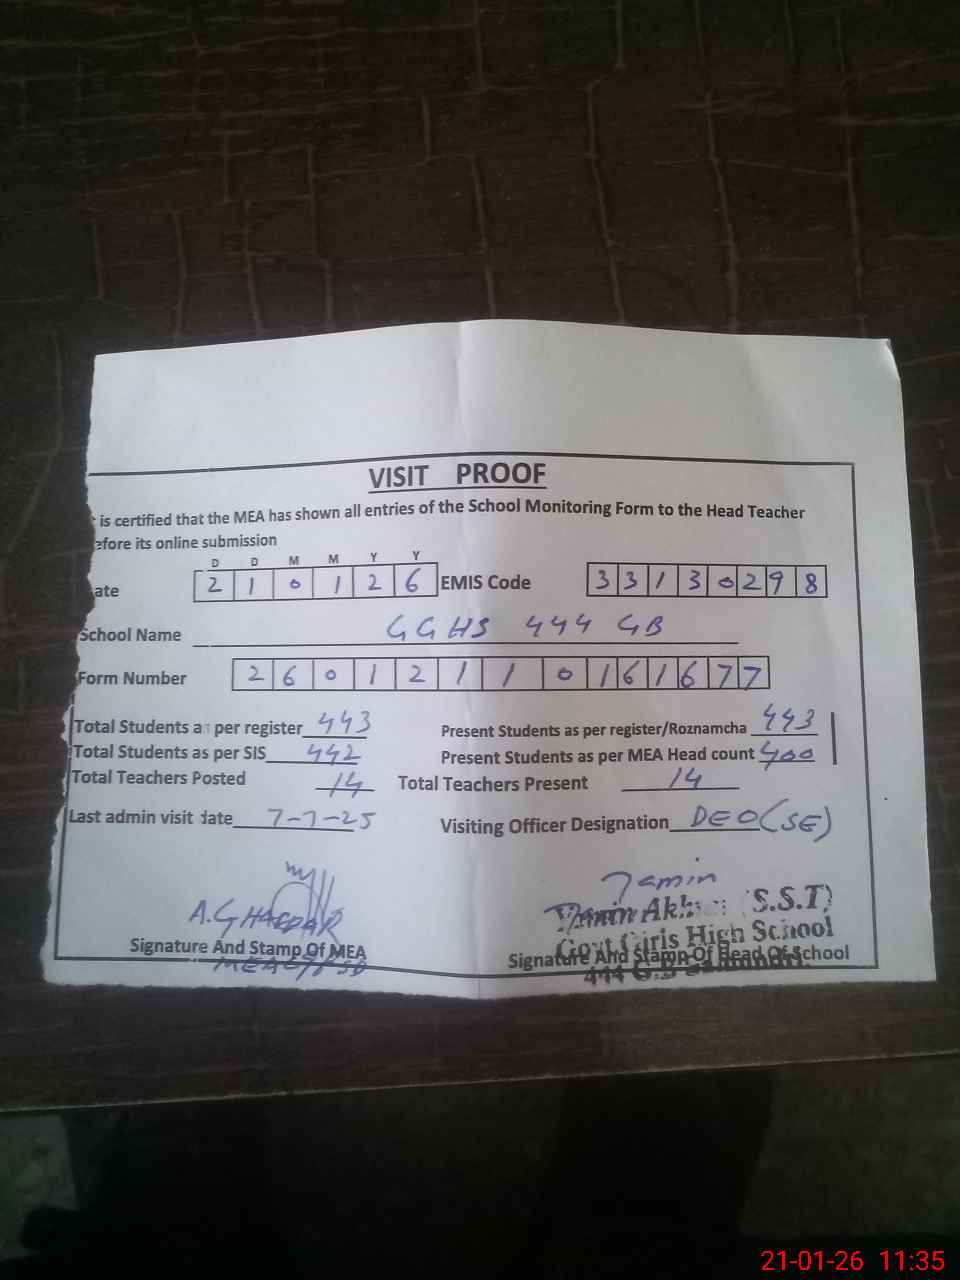 VISIT PROOF
is certified that the MEA has shown all entries of the School Monitoring Form to the Head Teacher
efore its online submission
D D M M Y Y
ate 2 1 0 1 2 6 EMIS Code 3 3 1 3 0 2 9 8
School Name GGHS 444 GB
Form Number 2 6 0 1 2 1 1 0 1 6 1 6 7 7
Total Students as per register 443 Present Students as per register/Roznamcha 443
Total Students as per SIS 442 Present Students as per MEA Head count 400
Total Teachers Posted 14 Total Teachers Present 14
Last admin visit date 7-7-25 Visiting Officer Designation DEO(SE)
Tamin
A.G (S.S.T)
Govt Girls High School
Signature And Stamp Of MEA Signature And Stamp Of Head Of School
444 G.B
21-01-26 11:35